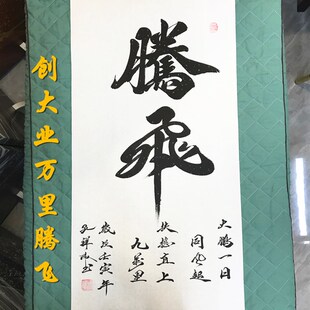 創大业万里腾飞
騰飛
大鹏一日
同风起
扶摇直上
九万里
岁次壬寅年